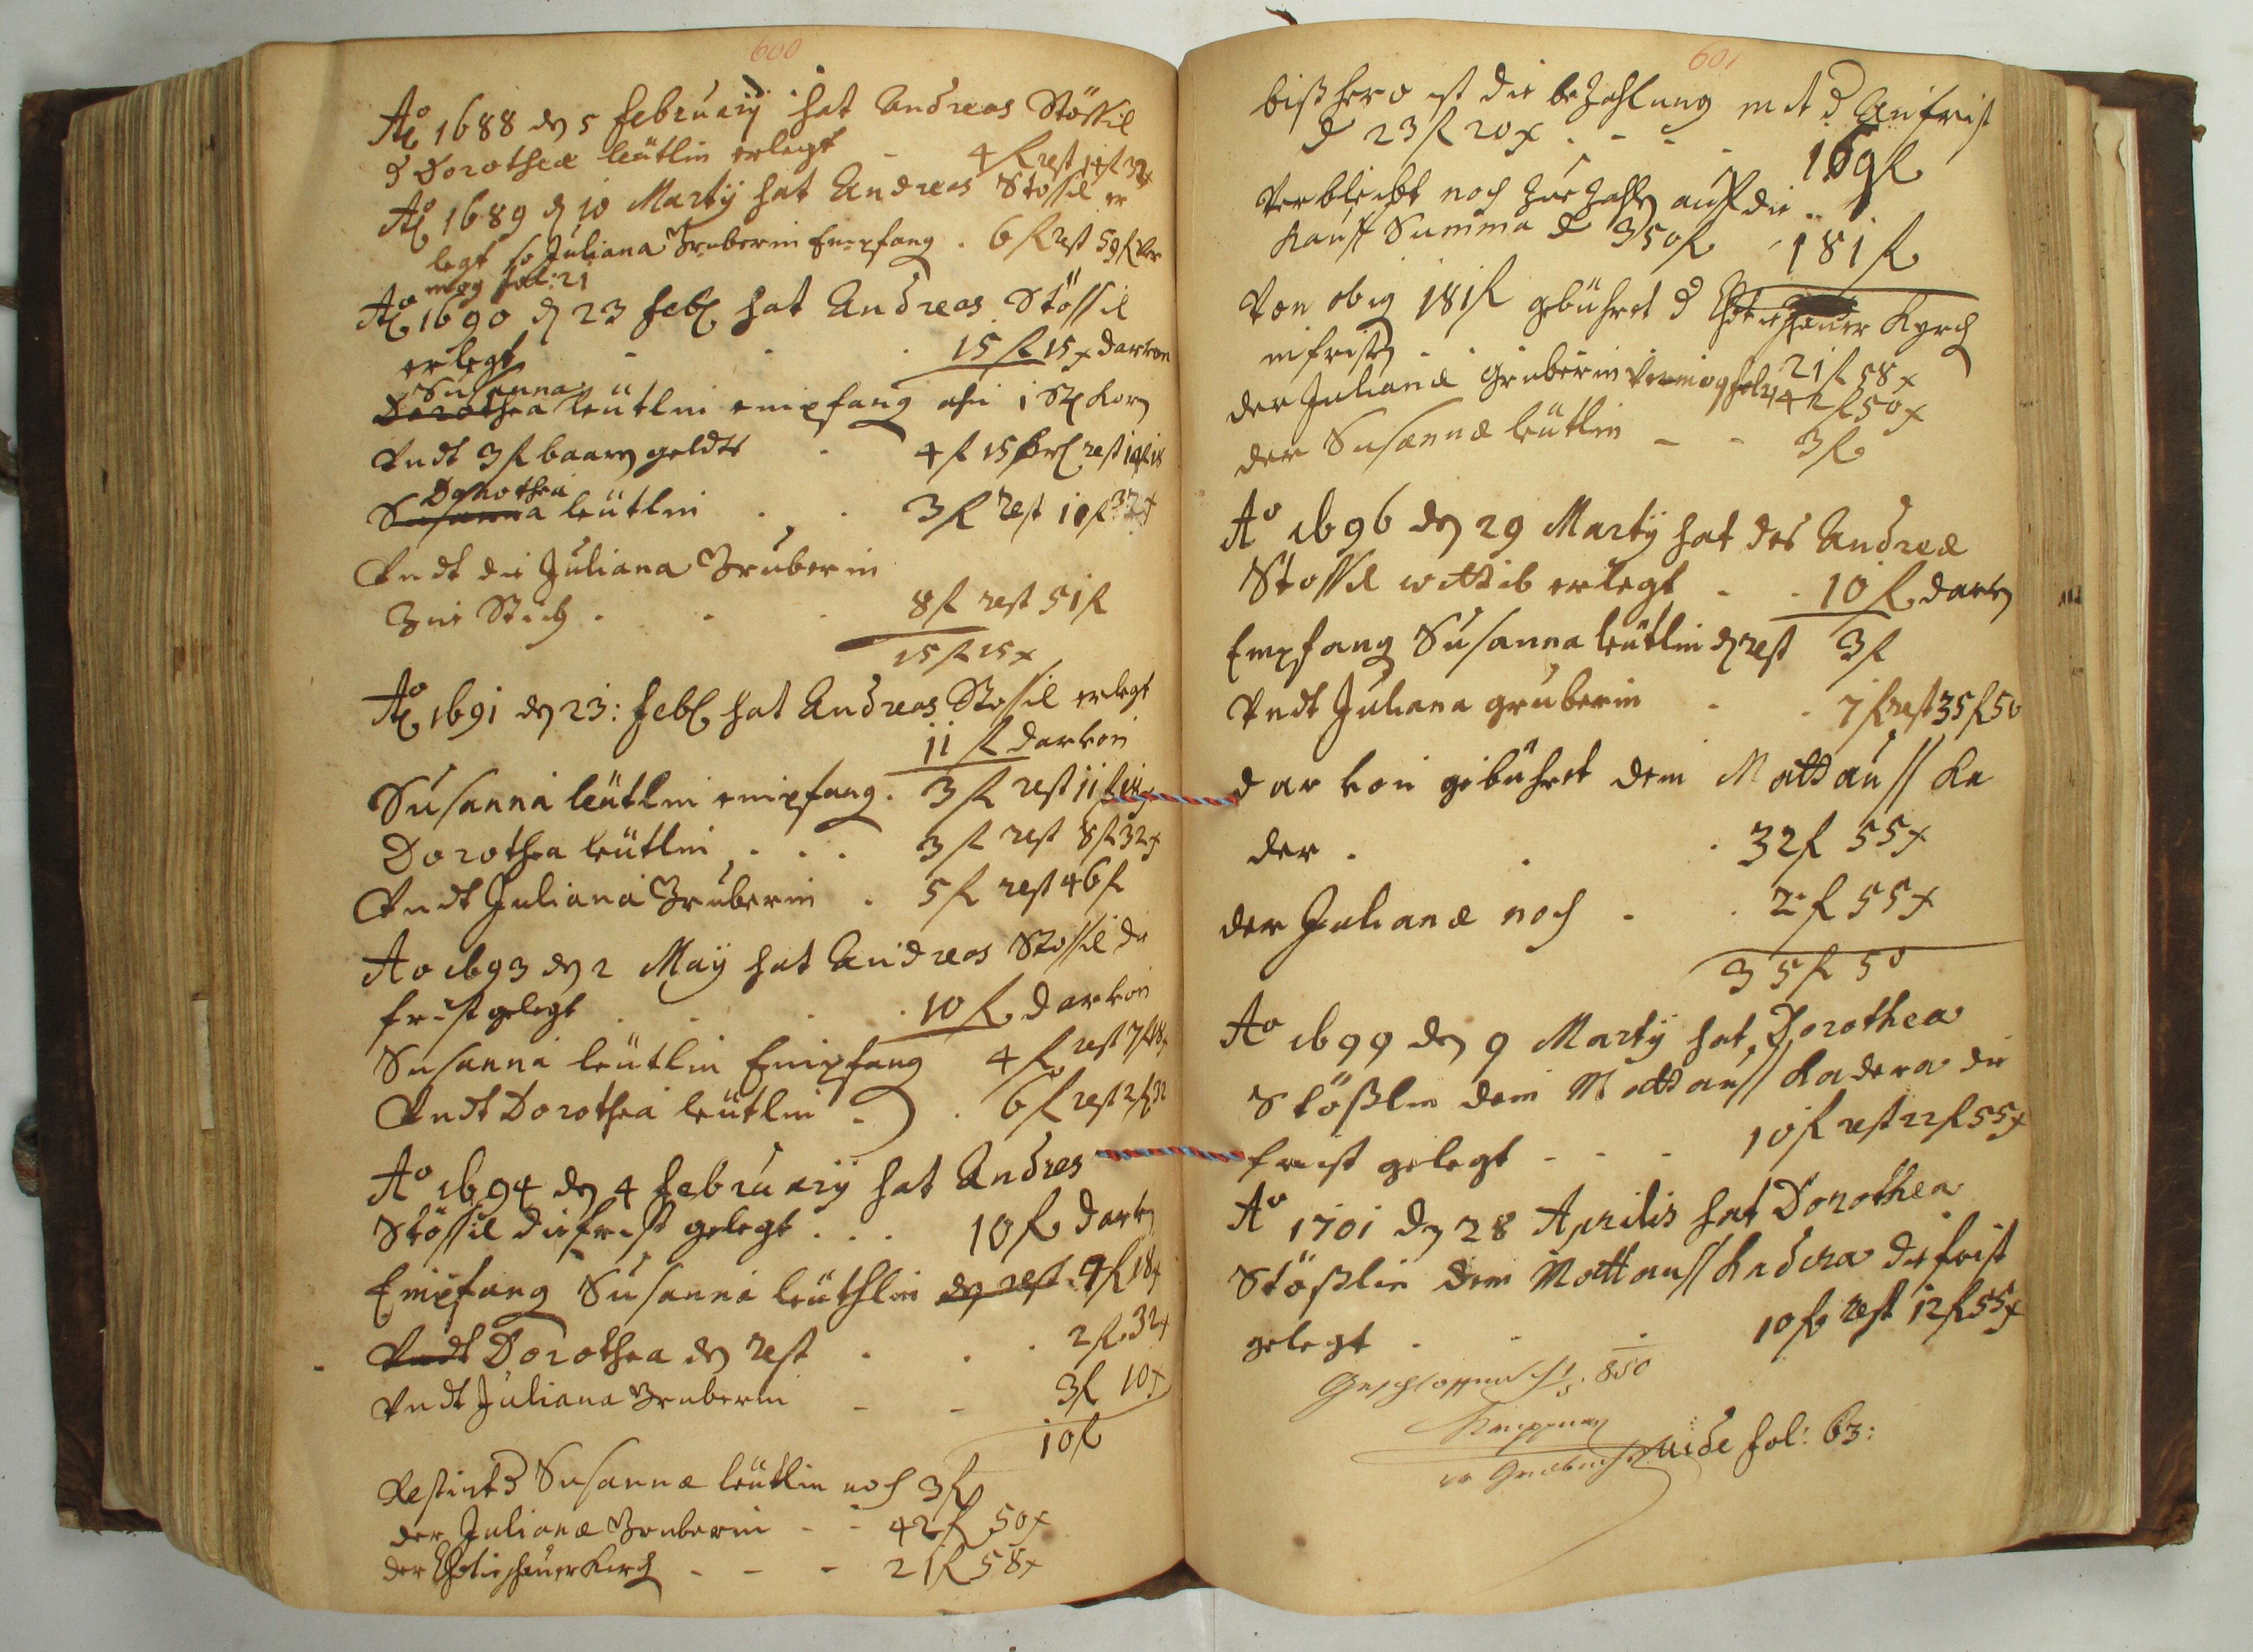 600
Ao 1688 den 5 february hat Andreas Stössil
d Dorotheæ leütlin erlegt - 4 fl rest 14 fl 32 x
Ao 1689 den 10 Marty hat Andreas Stössil er
legt so Juliana Gruberin Empfang . 6 fl rest 59 fl ver
mög fol: 21
Ao 1690 den 23 feb hat Andreas Stössil
erlegt - . . 15 fl 15 x darvon
Susanna
Dorothea leütlin empfang ahn 1 Korn
Vndt 3 fl baaren geldts . 4 fl 15 rest 14 fl 18
Dorothea
Susanna leütlin . . 3 fl rest 10 fl 32 x
Vndt die Juliana Gruberin
. . . 8 fl rest 51 fl
15 fl 15 x
Ao 1691 den 23: feb hat Andreas Stossil erlegt
11 fl darvon
Susanna leütlin empfang . 3 fl rest 11 fl 18 x
Dorothea leütlin . . . 3 fl rest 8 fl 32 x
Vndt Juliana Gruberin . 5 fl rest 46 fl
Ao 1693 den 2 May hat Andreas Stossil die
frist gelegt . . . 10 fl darvon
Susanna leütlin Empfang 4 fl rest 7 fl 18 x
Vndt Dorothea leütlin . . 6 fl rest 2 fl 32
Ao 1694 den 4 february hat Andres
Stössil die frist gelegt . . . 10 fl darvon
Empfang Susanna leüthlin den rest 4 fl 18 x
Vndt Dorothea den rest . . . 2 fl 32 x
Vndt Juliana Gruberin - - 3 fl 10 x
10 fl
Restirt d Susannæ leütlin noch 3 fl
der Julianæ Gruberin - - 42 fl 50 x
der Kirch - - - 21 fl 58 x
601
bißhero ist die bezahlung mit d Anfrist
d 23 fl 20 x . - - . 169 fl
Verbleibt noch zue Zahlen auff die
Kauff Summa d 350 fl - 181 fl
Von obig 181 fl gebühret d Kyrch
in fristen . . 21 fl 58 x
der Julianæ Gruberin Vermög fol: 21 42 fl 50 x
der Susannæ leütlin - - 3 fl
Ao 1696 den 29 Marty hat des Andreæ
Stossil wittib erlegt . . 10 fl darvon
Empfang Susanna leütlin den rest 3 fl
Vndt Juliana gruberin . . 7 fl rest 35 fl 50
darvon gebühret dem Mattauss Ka
der . . . 32 fl 55 x
der Julianæ noch . . 2 fl 55 x
35 fl 50
Ao 1699 den 9 Marty hat Dorothea
Stößlin dem Mattauss Kadera die
frist gelegt - - - 10 fl rest 22 fl 55 x
Ao 1701 den 28 Aprilis hat Dorothea
Stößlin dem Mattauss Kadera die frist
gelegt . . . 10 fl rest 12 fl 55 x
Geschlossen 850
vide fol: 63: